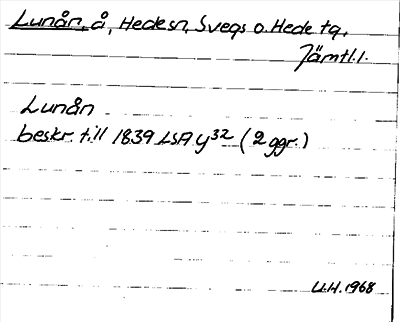 Lunån, å, Hede sn, Svegs o. Hede tg,
Jämtl. l.
Lunån
beskr. till 1839 LSA y32 (2 ggr.)
U.H. 1968